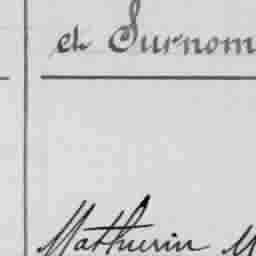 et Surnom
Mathurin M